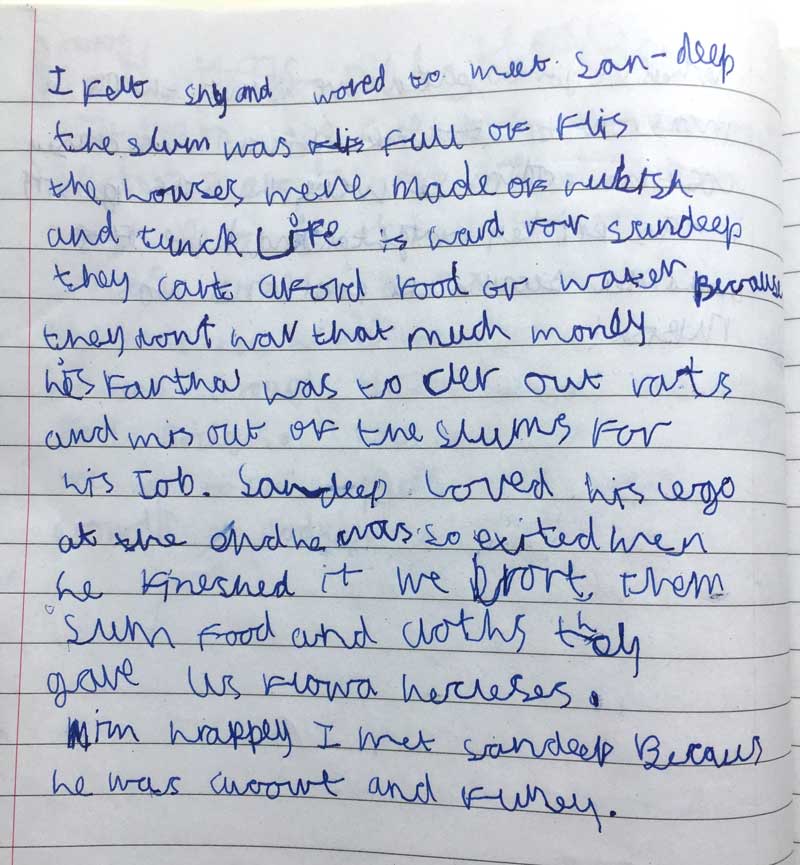 I Felt shy and wored to meet San-deep
the slum was flis full of Flis
the howses were made of rubish
and tunck Life is hard for sandeep
they cart aford food or water Because
they dont hav that much money
his Farthar was to cler out rats
and mis out of the slums For
his Iob. Sandeep loved his lego
at the end he was so exited wen
he Fineshed it we brort them
Sum Food and cloths they
gave us Flowa necleses.
im happey I met sandeep Becaus
he was and Funey.